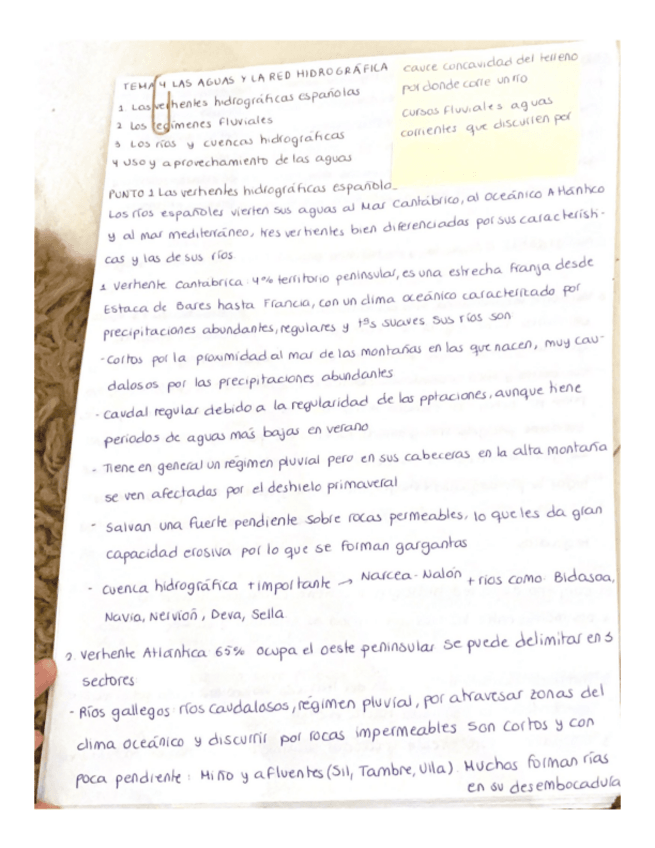 TEMA 4 LAS AGUAS Y LA RED HIDROGRÁFICA
1 Las vertientes hidrográficas españolas
2 Los regímenes fluviales
3 Los ríos y cuencas hidrográficas
4 Uso y aprovechamiento de las aguas
cauce concavidad del terreno
por donde corre un río
cursos fluviales aguas
corrientes que discurren por
PUNTO 1 Las vertientes hidrográficas española
Los ríos españoles vierten sus aguas al Mar Cantábrico, al Oceánico Atlántico
y al mar mediterráneo, tres vertientes bien diferenciadas por sus característi-
cas y las de sus ríos
1 vertiente cantábrica: 4% territorio peninsular, es una estrecha franja desde
Estaca de Bares hasta Francia, con un clima oceánico caracterizado por
precipitaciones abundantes, regulares y tªs suaves sus ríos son
- cortos por la proximidad al mar de las montañas en las que nacen, muy cau-
dalosos por las precipitaciones abundantes
- caudal regular debido a la regularidad de las pptaciones, aunque tiene
periodos de aguas más bajas en verano
- Tiene en general un régimen pluvial pero en sus cabeceras en la alta montaña
se ven afectadas por el deshielo primaveral
- salvan una fuerte pendiente sobre rocas permeables, lo que les da gran
capacidad erosiva por lo que se forman gargantas
- cuenca hidrográfica + importante → Narcea-Nalón + ríos como Bidasoa,
Navia, Nervión, Deva, Sella
2. vertiente Atlántica 65% ocupa el oeste peninsular se puede delimitar en 3
sectores
- Ríos gallegos ríos caudalosos, régimen pluvial, por atravesar zonas del
clima oceánico y discurrir por rocas impermeables son cortos y con
poca pendiente: Miño y afluentes (Sil, Tambre, Ulla). Muchos forman rías
en su desembocadura